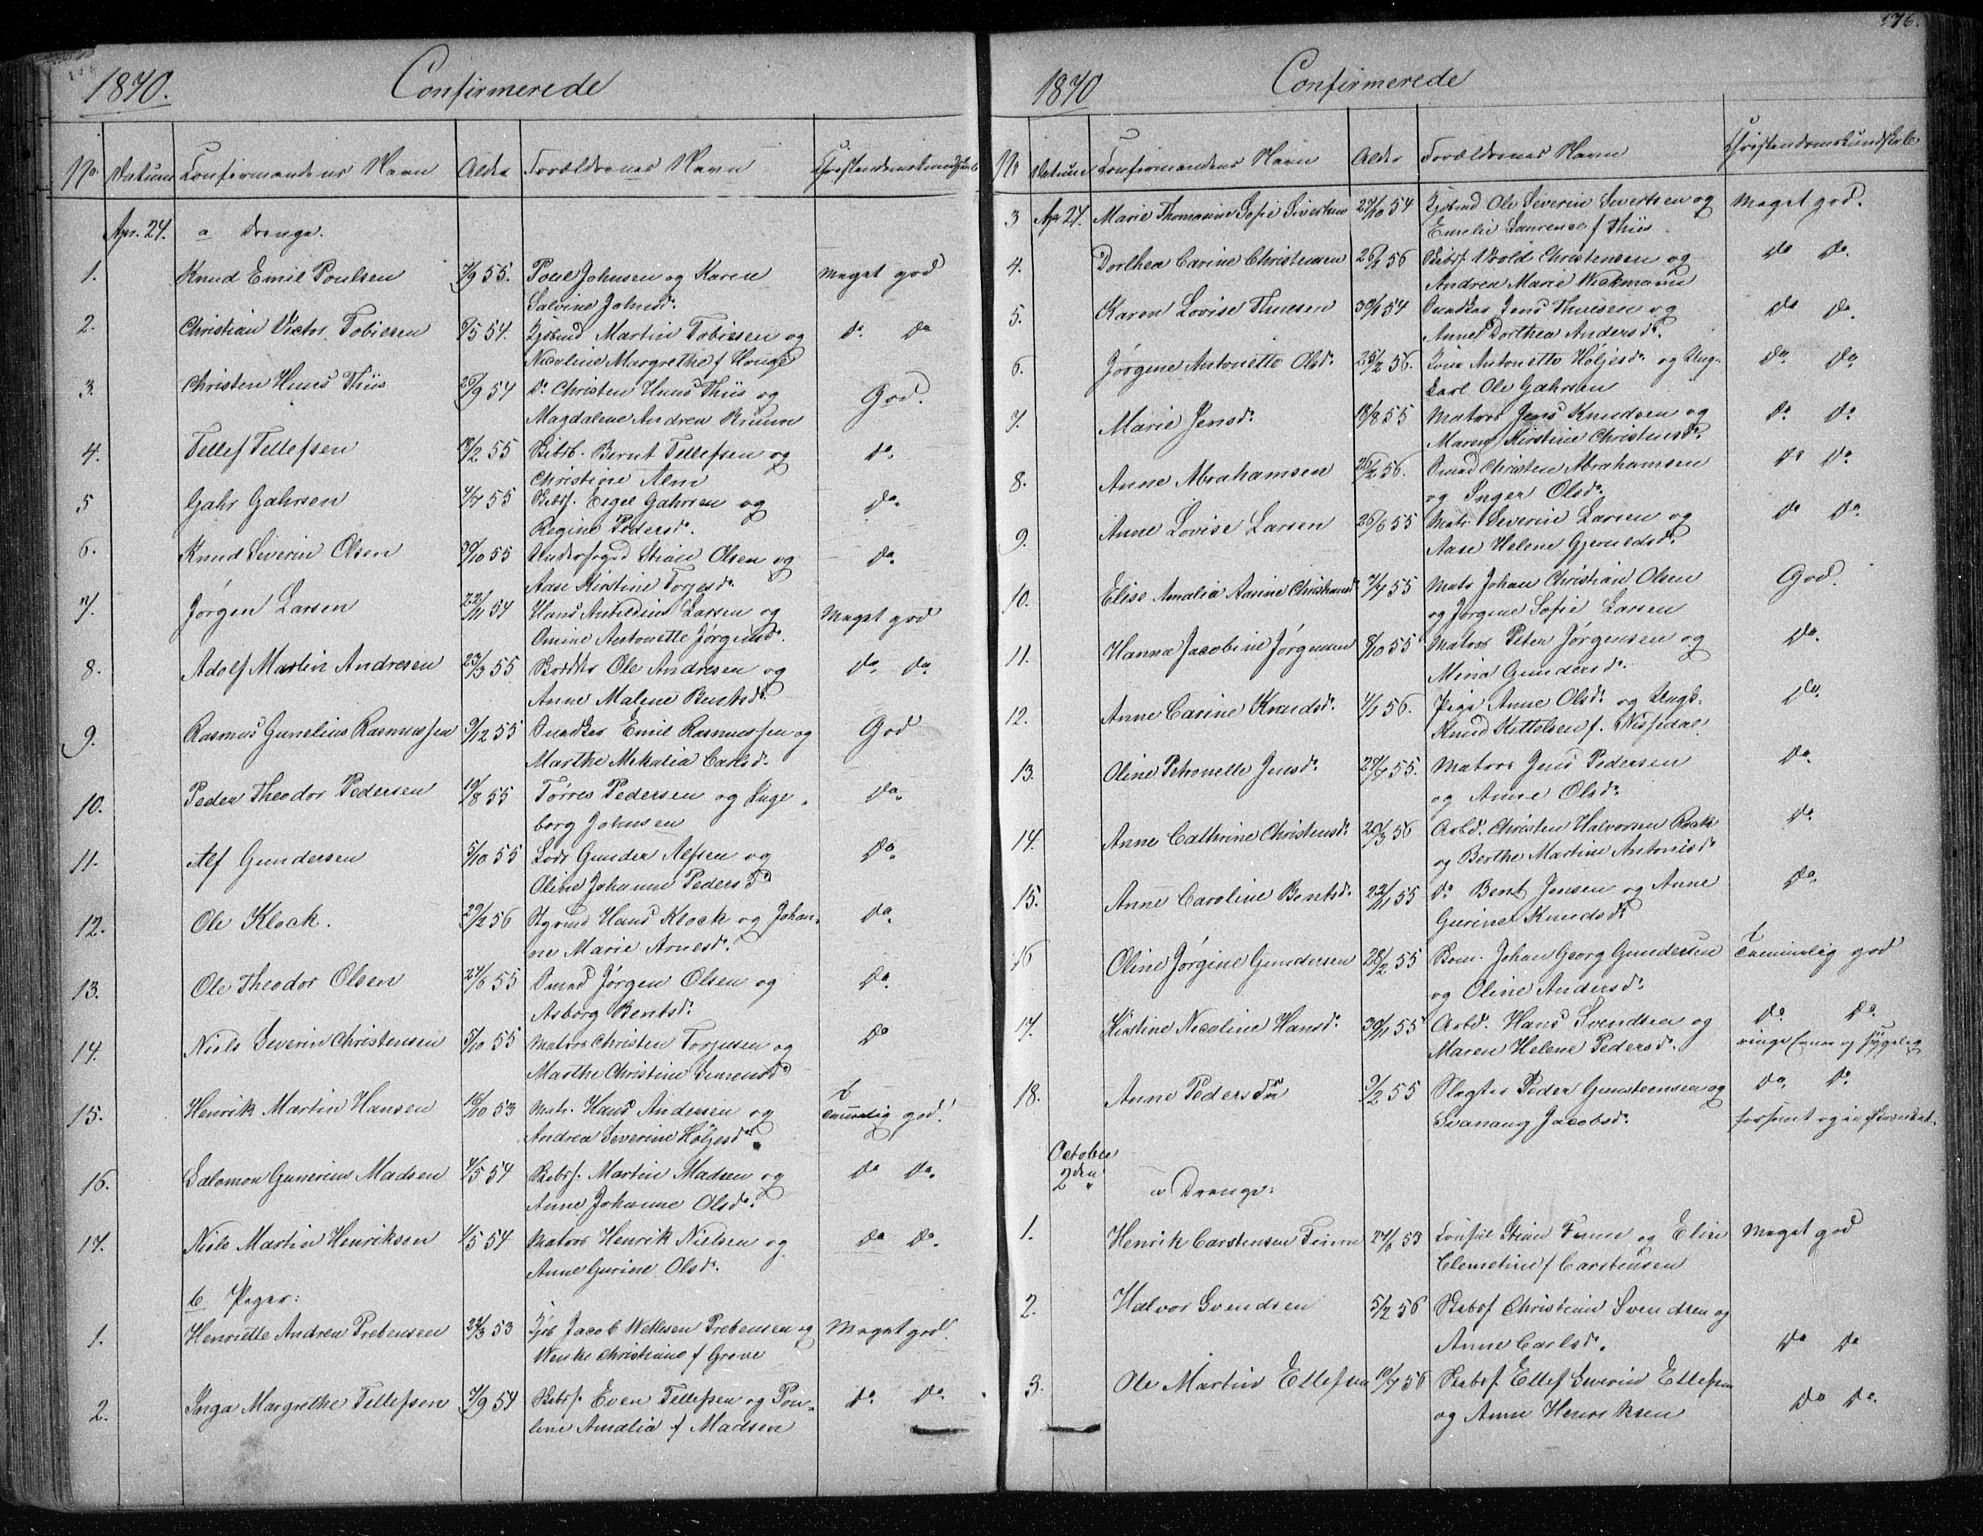 1870. Confirmerede
No Datum Confirmandens Navn Alder Forældrenes Navn Christendomskundskab
Apr. 24. a Drenge.
1. Knud Emil Poulsen 7/9 55. Poul Johnsen og Karen Meget god
Salvine Johnsd.
2. Christian Victor Tobiesen 54. Martin Tobiesen og do do
Nicoline Margrethe f Houge
3. Christen Huus Thiis 26/9 54 do Christen Huus Thiis og God.
Magdalene Andrea Bruun
4. Tellef Tellefsen 55 Skibsb. Bernt Tellefsen og do
Christine Alm
5 Gahr Gahrsen 55 Skibsf. Eegel Gahrsen og do
Regine Pedersd.
6. Knud Severin Olsen 55 Underfoged Stian Olsen og do
Aase Kirstine Torjesd.
7. Jørgen Larsen 22/11 54 Hans Larsen og Meget god
Omine Antonette Jørgensd.
8. Adolf Martin Andresen 23/3 55 Ole Andresen og do do
Anne Malene Bentsd.
9. Rasmus Gunelius Rasmussen 9/12 55 Emil Rasmussen og God
Marthe Mikalia Carlsd.
10. Peder Theodor Pedersen 19/8 55 Tørres Pedersen og Inge- do
borg Johnsen
11. Alf Gundersen 5/10 55 Lods Gunder Alfsen og do
Oline Johanne Pedersd.
12. Ole Klock. 29/2 56 Styrmd Hans Klock og Johan- do
ne Marie Arnesd.
13. Ole Theodor Olsen 27/6 55 Jørgen Olsen og do
Asborg Bentsd.
14. Niels Severin Christensen 5/10 55 Matros Christen Torjusen og do
Marthe Christine Simensd.
15. Henrik Martin Hansen 16/10 53 Matr. Hans Andersen og Temmelig god!
Andrea Severine Höljesd.
16. Salomon Gunerius Madsen 4/5 54 Skibsf. Martin Madsen og do do
Anne Johanne Olsd.
17. Niels Martin Henriksen 1/5 54 Matros Henrik Nielsen og do do.
Anne Gurine Olsd.
b Piger:
1. Henriette Andrea Prebensen 22/3 53 Kjøb Jacob Wettesen Prebensen og Meget god.
Wenke Christiane f Grove
2. Inga Margrethe Tellefsen 7/9 54 Skibsf. Even Tellefsen og Pou- do do
line Amalia f Madsen
176.
1870 Confirmerede
No Datum Confirmandens Navn Alder Forældrenes Navn Christendomskundskab
3 Apr 24. Marie Thomasine Sofie Sivertsen 27/10 54 Kjøbmd Ole Severin Sivertsen og Meget god.
Emelie Laurence f Thiis
4. Dorthea Carine Christensen 56 Skibsf. Christensen og do do.
Andrea Marie Wickmann
5. Karen Lovise Thuesen 54 Jens Thuesen og do do.
Anne Dorthea Andersd.
6. Jørgine Antonette Olsd. 25/2 56. Antonette Höljesd. og Ung- do. do.
karl Ole Gahrsen
7. Marie Jensd. 18/8 55 Matros Jens Knudsen og do do.
Maren Kirstine Christensd.
8. Anne Abrahamsen 26/2 56. Christen Abrahamsen do do.
og Inger Olsd.
9. Anne Lovise Larsen 26/6 55 Matr. Severin Larsen og do do.
Aase Helene Gjeruldsd.
10. Elise Amalia Aasine 55 Matr Johan Christian Olsen God.
og Jørgine Sofie Larsen
11. Hanna Jacobine Jørgensen 8/10 55 Matros Peter Jørgensen og do.
Mina Gundersd.
12. Anne Carine Knudsd. 56. Pige Anne Olsd. og Ungk. do.
Knud Kittelsen f. Nissedal
13. Oline Petronelle Jensd. 55. Matros Jens Pedersen do.
og Anne Olsd.
14. Anne Cathrine Christensd. 20/3 56 Arbd. Christen Halvorsen do.
og Berthe Martine Antonisd.
15. Anne Caroline Bentsd. 22/11 55 do Bent Jensen og Anne do.
Gurine Knudsd.
16 Oline Jørgine Gundersen 28/2 55 Johan Georg Gundersen Temmelig god
og Oline Andersd.
17. Kirstine Nicoline Hansd. 30/11 55 Arbd. Hans Svendsen og do do.
Maren Helene Pedersd. ringe Evner og sygelig
18. Anne Pedersd. 9/2 55 Slagter Peder Gunsteensen og do. do.
Svanaug Jacobsd.
October
2den a Drenge:
1. Henrik Carstensen Finne 53 Consul Stian Finne og Elise Meget god
Clemetine f Carstensen
2. Halvor Svendsen 5/2 56 Skibsf Christian Svendsen og
Anne Carlsd. do do
3. Ole Martin Ellefsen 56 Skibsf. Ellef Severin Ellefsen
og Anne Henriksen do do.